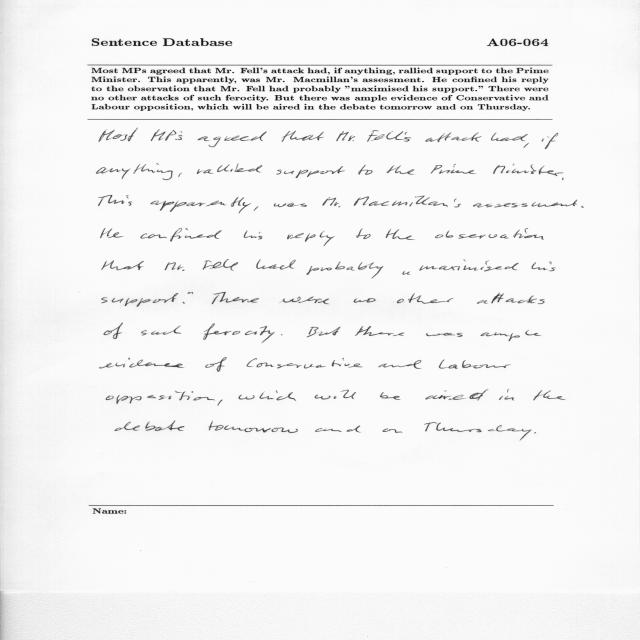 Sentence Database A06-064
Most MPs agreed that Mr. Fell's attack had, if anything, rallied support to the Prime
Minister. This apparently, was Mr. Macmillan's assessment. He confined his reply
to the observation that Mr. Fell had probably "maximised his support." There were
no other attacks of such ferocity. But there was ample evidence of Conservative and
Labour opposition, which will be aired in the debate tomorrow and on Thursday.
Most MP's agreed that Mr. Fell's attack had, if
anything, rallied support to the Prime Minister.
This apparently, was Mr. Macmillan's assessment.
He confined his reply to the observation
that Mr. Fell had probably „maximised his
support." There were no other attacks
of such ferocity. But there was ample
evidence of Conservative and Labour
opposition, which will be aired in the
debate tomorrow and on Thursday.
Name: